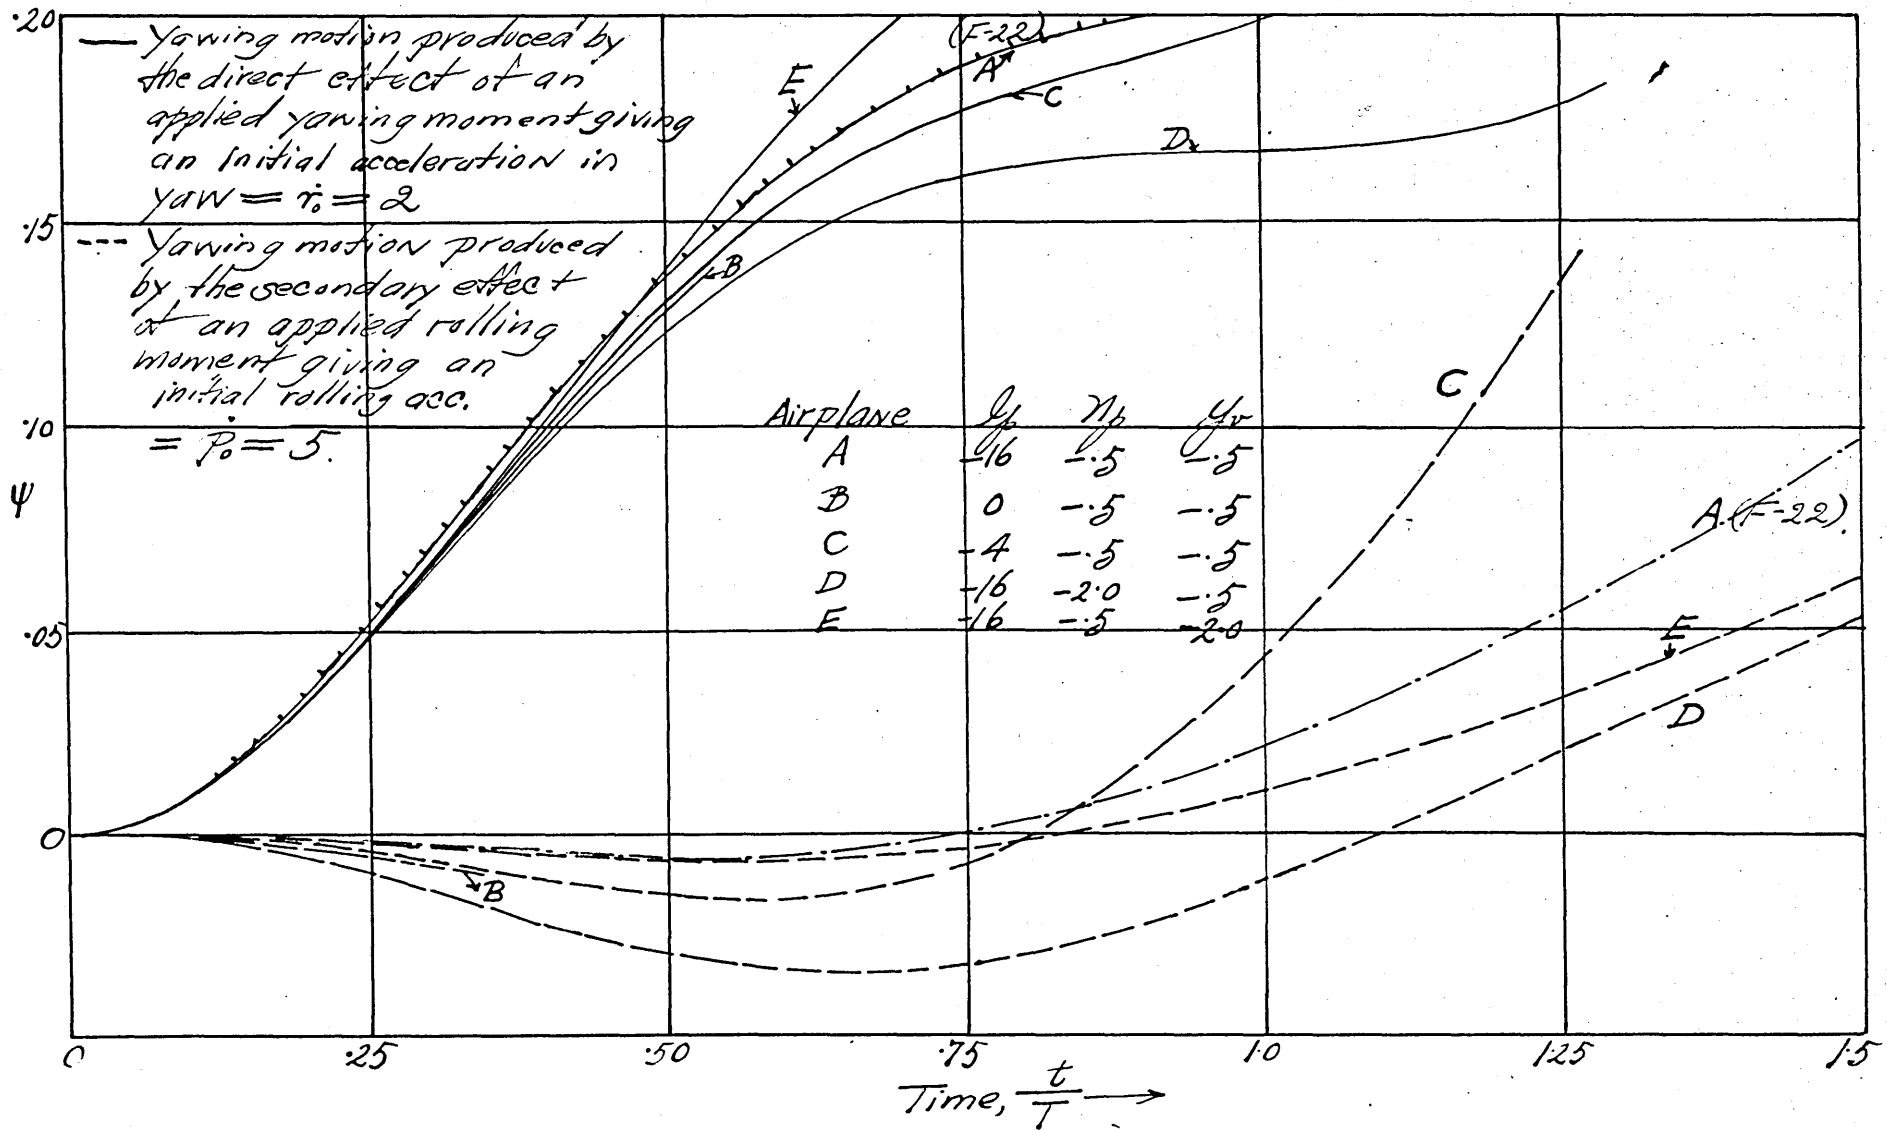 .20
Yawing motion produced by
the direct effect of an
applied yawing moment giving
an initial acceleration in
yaw = ṙ₀ = 2
.15
Yawing motion produced
by the secondary effect
of an applied rolling
moment giving an
initial rolling acc.
= ṗ₀ = 5.
.10
ψ
.05
0
E
(F-22)
A
C
D
B
Airplane lp np yv
A -16 -.5 -.5
B 0 -.5 -.5
C -4 -.5 -.5
D -16 -2.0 -.5
E -16 -.5 -2.0
C
A.(F-22).
E
D
B
0 .25 .50 .75 1.0 1.25 1.5
Time, t/T